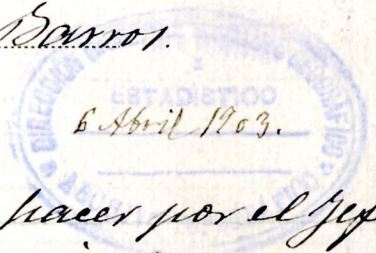 Barros.
DIRECCION
ESTADISTICO
6 Abril 1903.
hacer por el Jef